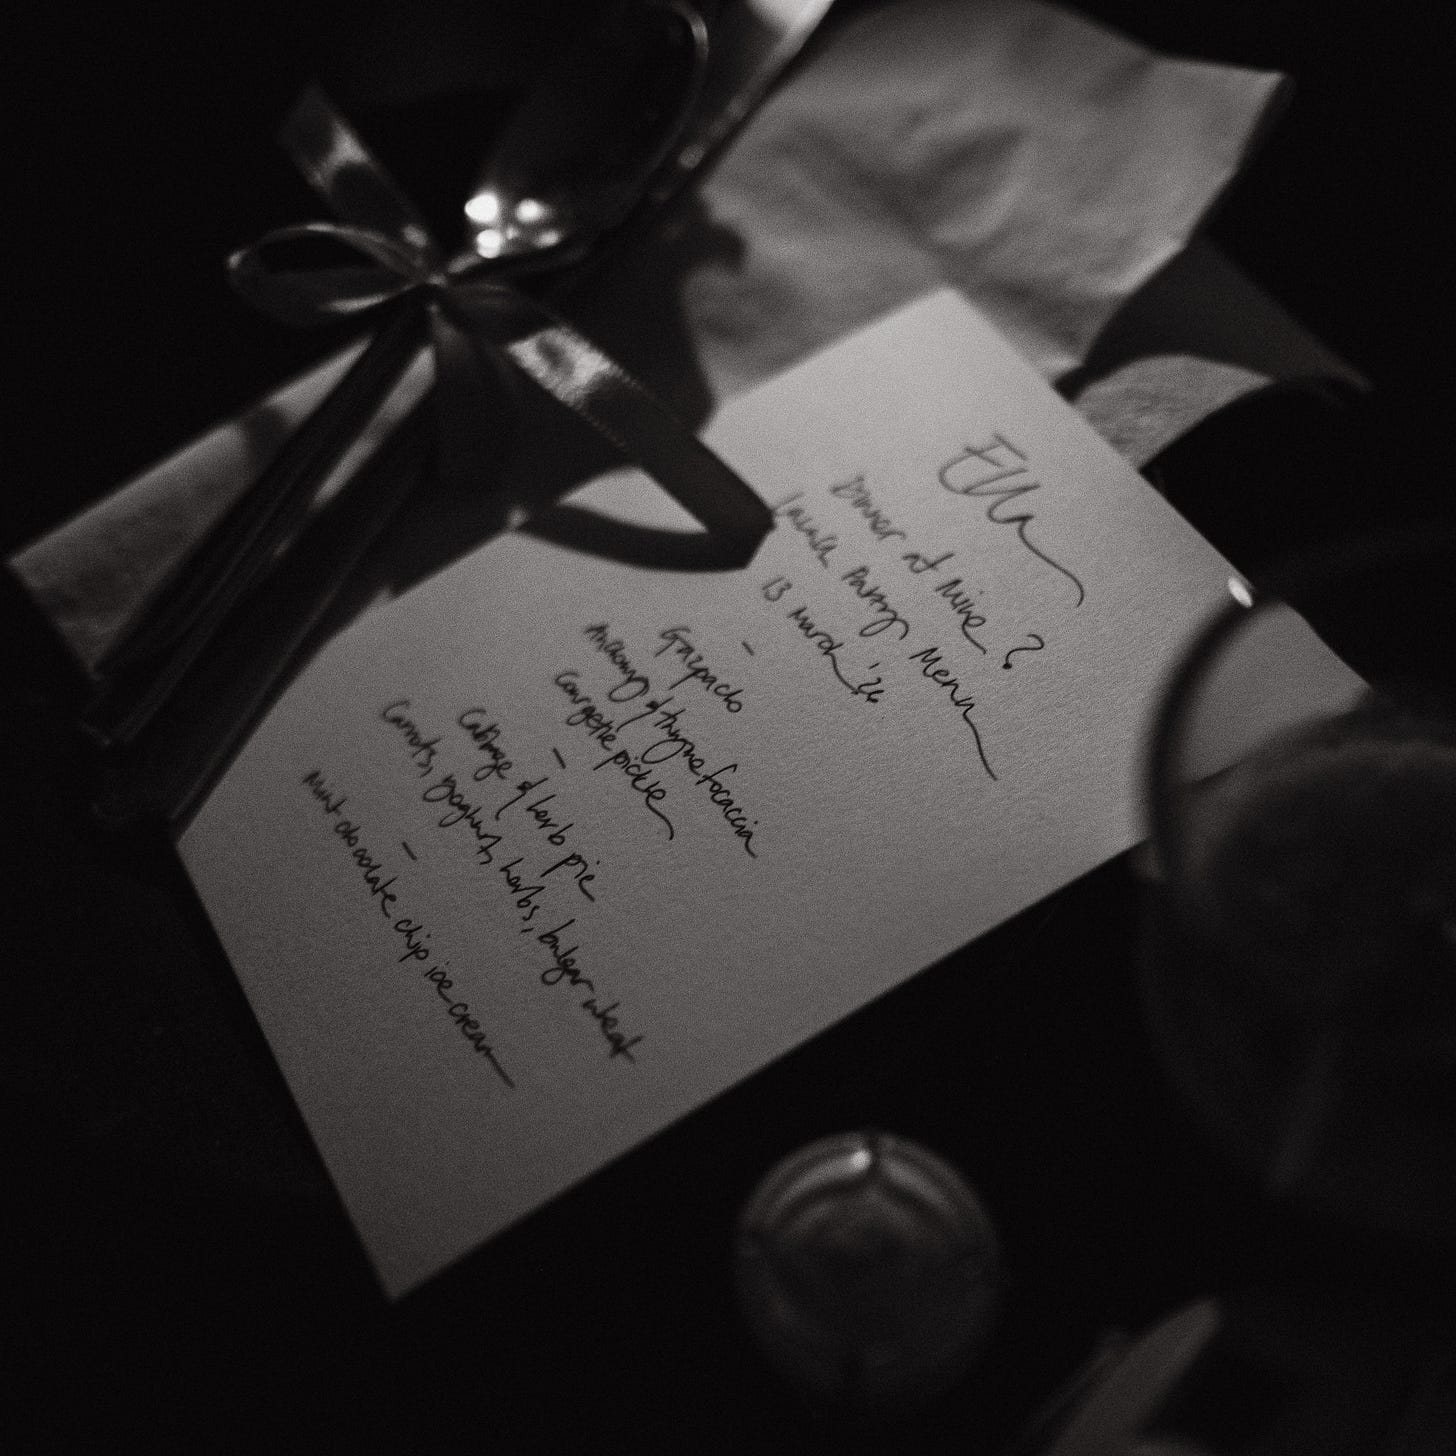 Ella
Dinner at Mine ?
Launch Party Menu
13 March '26
–
Gazpacho
Anchovy & thyme focaccia
Courgette pickle
–
Cabbage & herb pie
Carrots, yoghurt, herbs, bulgar wheat
–
Mint chocolate chip ice cream